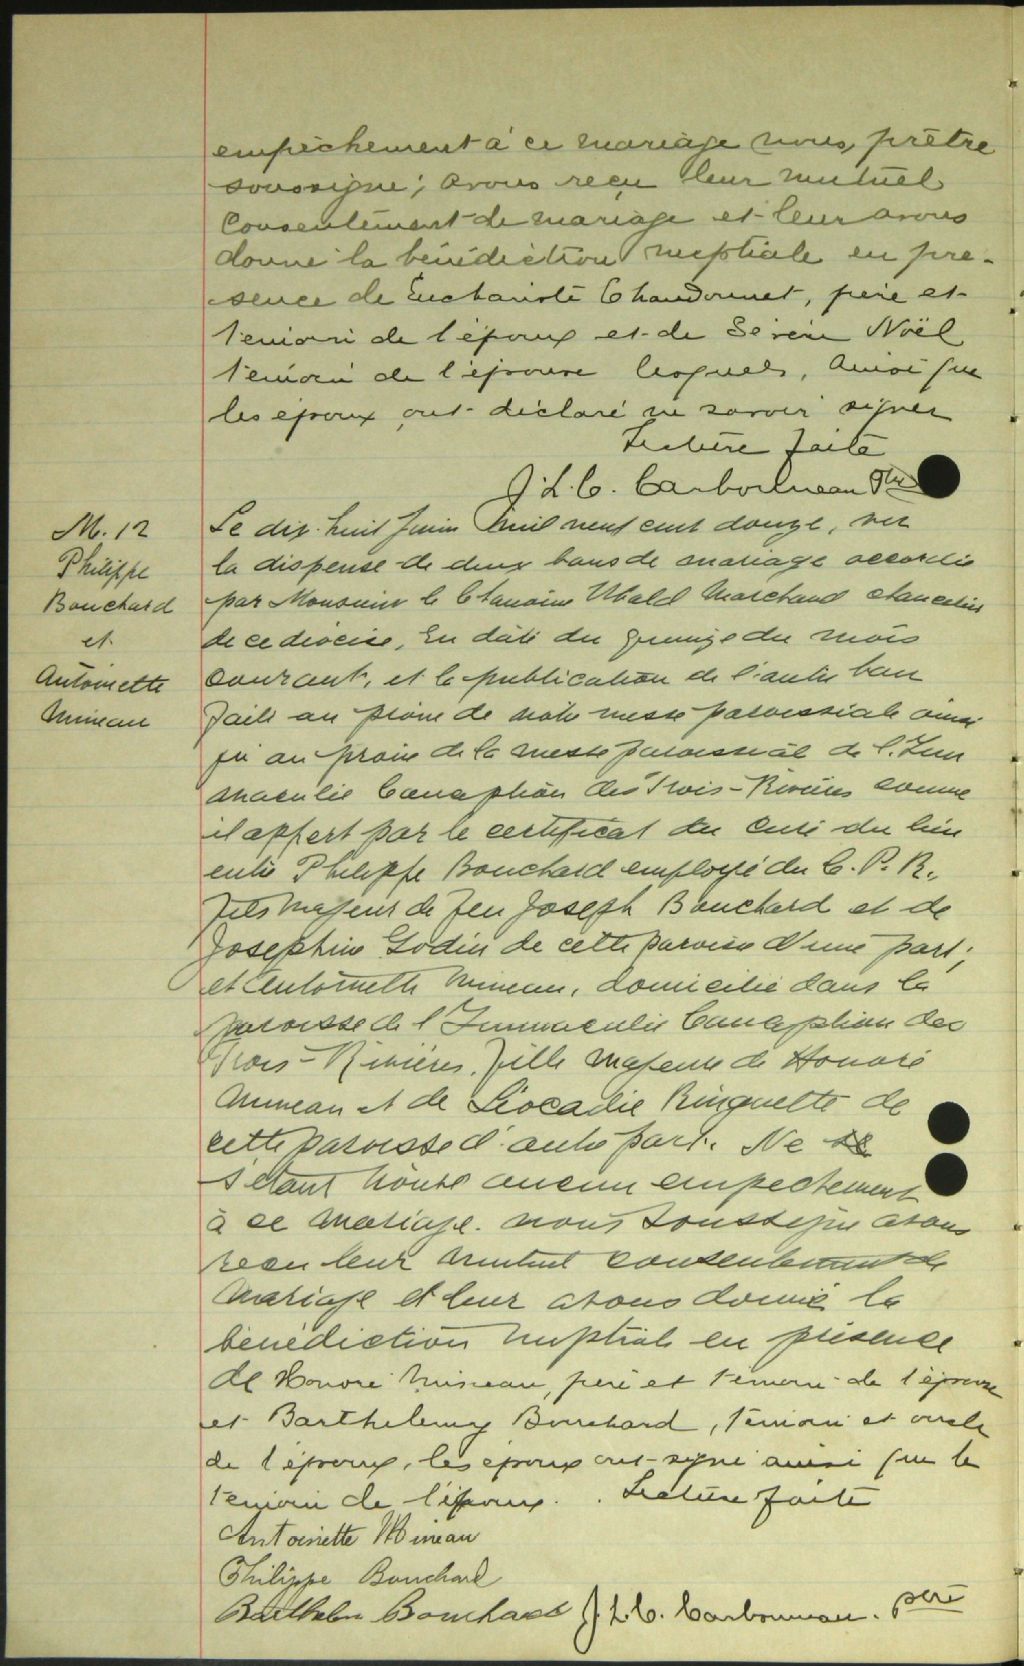 empêchement à ce mariage nous, prêtre
soussigné; avons reçu leur mutuel
Consentement de mariage et leur avons
donné la bénédiction nuptiale en pré-
sence de Euchariste Chandonnet, père et
témoin de l'époux et de Sévère Noël
témoin de l'épouse lesquels, Ainsi que
les époux ont déclaré ne savoir signer
Lecture faite
J. L. C. Carbonneau Ptre
M. 12
Philippe
Bouchard
et
Antoinette
Mineau
Le dix-huit Juin Mil neuf cent douze, vu
la dispense de deux bans de mariage accordée
par Monsieur le Chanoine Ubald Marchand chancelier
de ce diocèse, En date du quinze du mois
courant, et la publication de l'autre ban
faite au prône de notre messe paroissiale ainsi
qu'au prône de la messe paroissiale de l'Im
maculée Conception des Trois-Rivières comme
il appert par le certificat du curé du lieu
entre Philippe Bouchard employé du C. P. R.,
fils majeur de feu Joseph Bouchard et de
Josephine Godin de cette paroisse d'une part;
et Antoinette Mineau, domiciliée dans la
paroisse de l'Immaculée Conception des
Trois-Rivières, fille majeure de Honoré
Mineau et de Léocadie Ringuette de
cette paroisse d'autre part. Ne se
s'étant trouvé aucun empêchement
à ce mariage. nous soussigné avons
recu leur mutuel consentement de
Mariage et leur avons donné la
bénédiction nuptiale en présence
de Honoré Mineau, père et témoin de l'épouse
et Barthelemy Bouchard, témoin et oncle
de l'époux, les époux ont signé ainsi que le
témoin de l'époux. Lecture faite
Antoinette Mineau
Philippe Bouchard
Bouchard J. L. C. Carbonneau. ptre